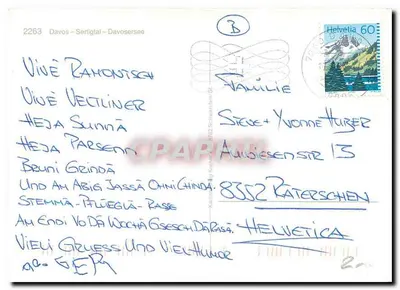 2263 Davos - Sertigtal - Davosersee
B
Helvetia 60
Vivè Ramontsch
Vivè Veltliner
Heja Sunnä
Heja Parsenn
Bruni Grindä
Und am Abig Jassä ohni Chinda
Stemmä - Pflüeglä - Rassä
Am Endi vo dä Wochä Gseesch dä Rasä
Vieli Grüess und viel Humor
Familie
Steve + Yvonne Huber
8352 Räterschen
Helvetica
CPARAMA